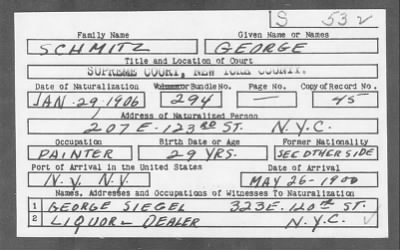 S 532
Family Name Given Name or Names
SCHMITZ GEORGE
Title and Location of Court
SUPREME COURT, NEW YORK COUNTY.
Date of Naturalization Volume or Bundle No. Page No. Copy of Record No.
JAN. 29, 1906 294 — 45
Address of Naturalized Person
207 E. 123RD ST. N.Y.C.
Occupation Birth Date or Age Former Nationality
PAINTER 29 YRS. SEE OTHER SIDE
Port of Arrival in the United States Date of Arrival
N.Y. N.Y. MAY 26-1900
Names, Addresses and Occupations of Witnesses To Naturalization
1 GEORGE SIEGEL 323 E. 120th ST.
2 LIQUOR DEALER N.Y.C.